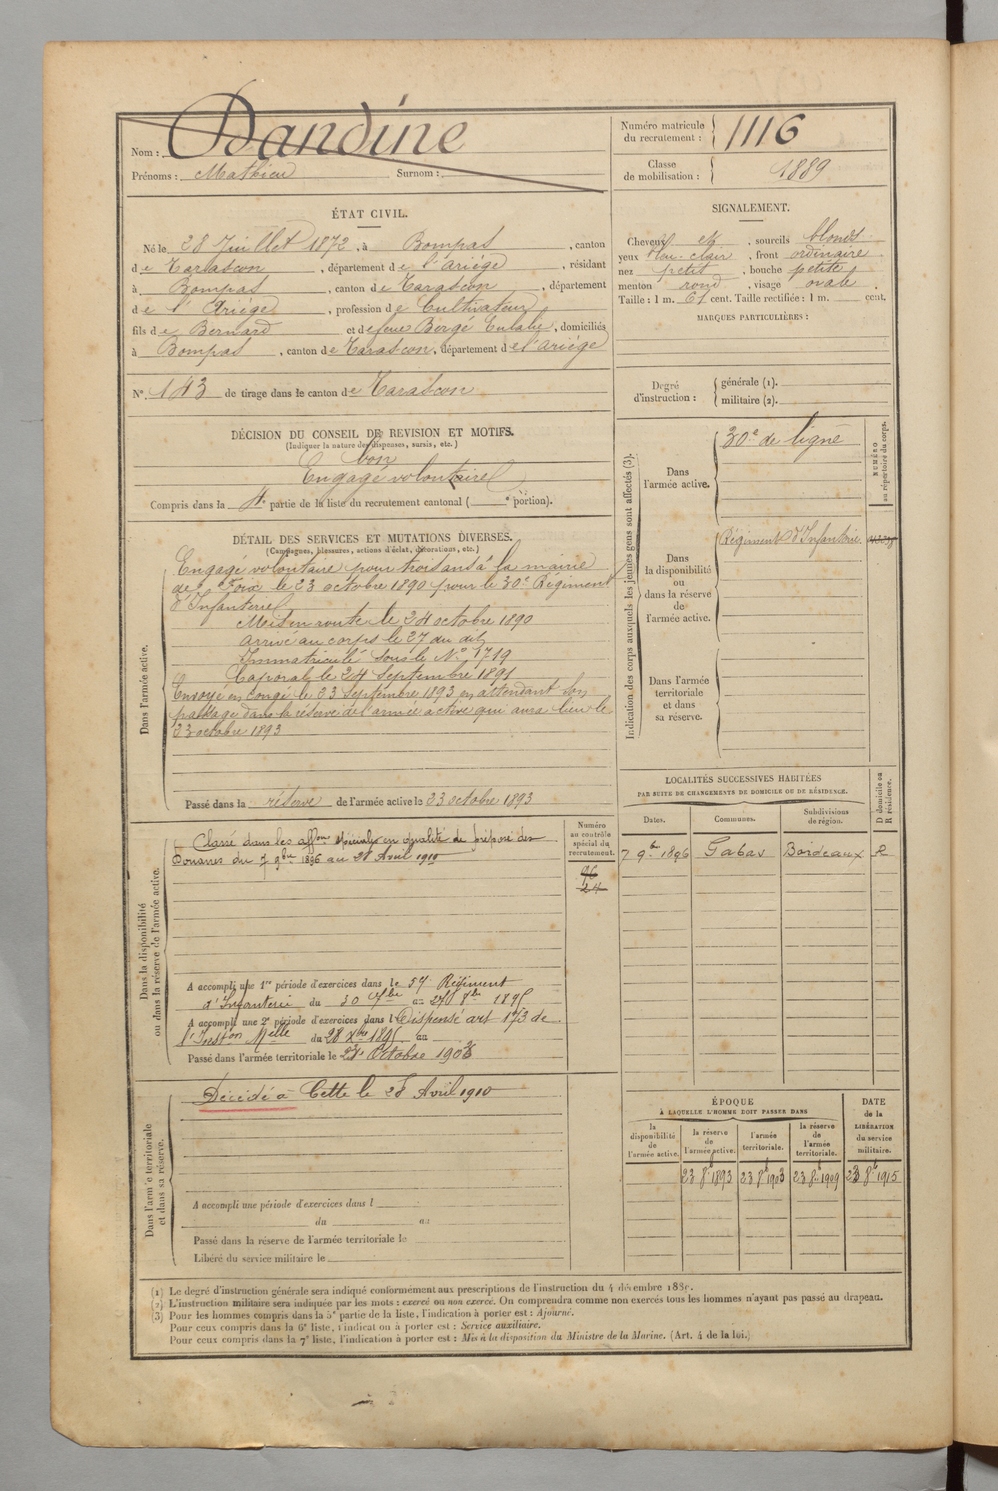 Nom : Dandine
Prénoms : Mathieu Surnom :
Numéro matricule du recrutement : 1116
Classe de mobilisation : 1889
ÉTAT CIVIL.
Né le 28 Juillet 1872, à Bompas, canton
de Tarascon, département de l'Ariège, résidant
à Bompas, canton de Tarascon, département
de l'Ariège, profession de Cultivateur
fils de Bernard et de feue Bergé Eulalie, domiciliés
à Bompas, canton de Tarascon, département de l'Ariège
N° 143 de tirage dans le canton de Tarascon
SIGNALEMENT.
Cheveux et, sourcils blonds
yeux bleu-clair, front ordinaire
nez petit, bouche petite
menton rond, visage ovale
Taille : 1 m. 61 cent. Taille rectifiée : 1 m. cent.
MARQUES PARTICULIÈRES :
Degré d'instruction : générale (1).
militaire (2).
DÉCISION DU CONSEIL DE REVISION ET MOTIFS.
(Indiquer la nature des dispenses, sursis, etc.)
bon
Engagé volontaire
Compris dans la 4e partie de la liste du recrutement cantonal ( e portion).
DÉTAIL DES SERVICES ET MUTATIONS DIVERSES.
(Campagnes, blessures, actions d'éclat, décorations, etc.)
Dans l'armée active.
Engagé volontaire pour trois ans à la mairie
de Foix le 23 octobre 1890 pour le 30e Régiment
d'Infanterie
Mis en route le 24 octobre 1890
arrivé au corps le 27 du dit
Immatriculé sous le N° 1719
Caporal le 24 Septembre 1891
Envoyé en congé le 23 Septembre 1893 en attendant son
passage dans la réserve de l'armée active qui aura lieu le
23 octobre 1893
Passé dans la réserve de l'armée active le 23 octobre 1893
Indication des corps auxquels les jeunes gens sont affectés (3).
Dans l'armée active.
30e de ligne
NUMÉRO au répertoire du corps.
Dans la disponibilité ou dans la réserve de l'armée active.
Régiment d'Infanterie
Dans l'armée territoriale et dans sa réserve.
LOCALITÉS SUCCESSIVES HABITÉES
PAR SUITE DE CHANGEMENTS DE DOMICILE OU DE RÉSIDENCE.
Dates. Communes. Subdivisions de région. D domicile ou R résidence.
7 9bre 1896 Gabas Bordeaux R
Dans la disponibilité ou dans la réserve de l'armée active.
Numéro au contrôle spécial du recrutement.
Classé dans les affons spéciales en qualité de préposé des
Douanes du 7 9bre 1896 au 28 Avril 1910
96
24
A accompli une 1re période d'exercices dans le 57 Régiment
d'Infanterie du 30 7bre au 27 8bre 1895
A accompli une 2e période d'exercices dans l Dispensé art 173 de
l'Inston Melle du 28 Xbre 1895 au
Passé dans l'armée territoriale le Octobre
Dans l'armée territoriale et dans sa réserve.
Décédé à Cette le 28 Avril 1910
A accompli une période d'exercices dans l
du au
Passé dans la réserve de l'armée territoriale le
Libéré du service militaire le
ÉPOQUE
À LAQUELLE L'HOMME DOIT PASSER DANS
DATE de la LIBÉRATION du service militaire.
la disponibilité de l'armée active. la réserve de l'armée active. l'armée territoriale. la réserve de l'armée territoriale.
23 8b 1893 23 8b 1903 23 8b 1909 23 8b 1915
(1) Le degré d'instruction générale sera indiqué conformément aux prescriptions de l'instruction du 4 décembre 1889.
(2) L'instruction militaire sera indiquée par les mots : exercé ou non exercé. On comprendra comme non exercés tous les hommes n'ayant pas passé au drapeau.
(3) Pour les hommes compris dans la 5e partie de la liste, l'indication à porter est : Ajourné.
Pour ceux compris dans la 6e liste, l'indication à porter est : Service auxiliaire.
Pour ceux compris dans la 7e liste, l'indication à porter est : Mis à la disposition du Ministre de la Marine. (Art. 4 de la loi.)